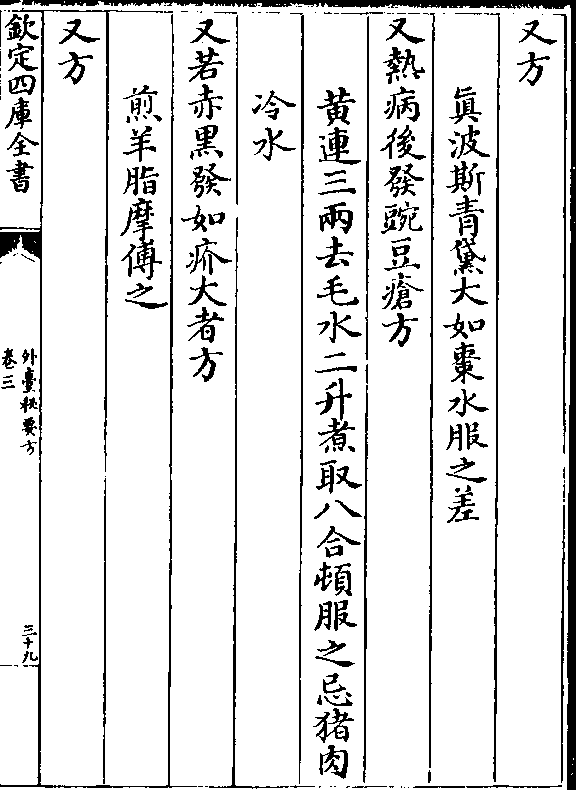 又方
真波斯青黛大如棗水服之差
又熱病後發豌豆瘡方
黄連三兩去毛水二升煮取八合頓服之忌猪肉
冷水
又若赤黒發如疥大者方
煎羊脂摩傅之
又方
欽定四庫全書
外臺秘要方
卷三
三十九